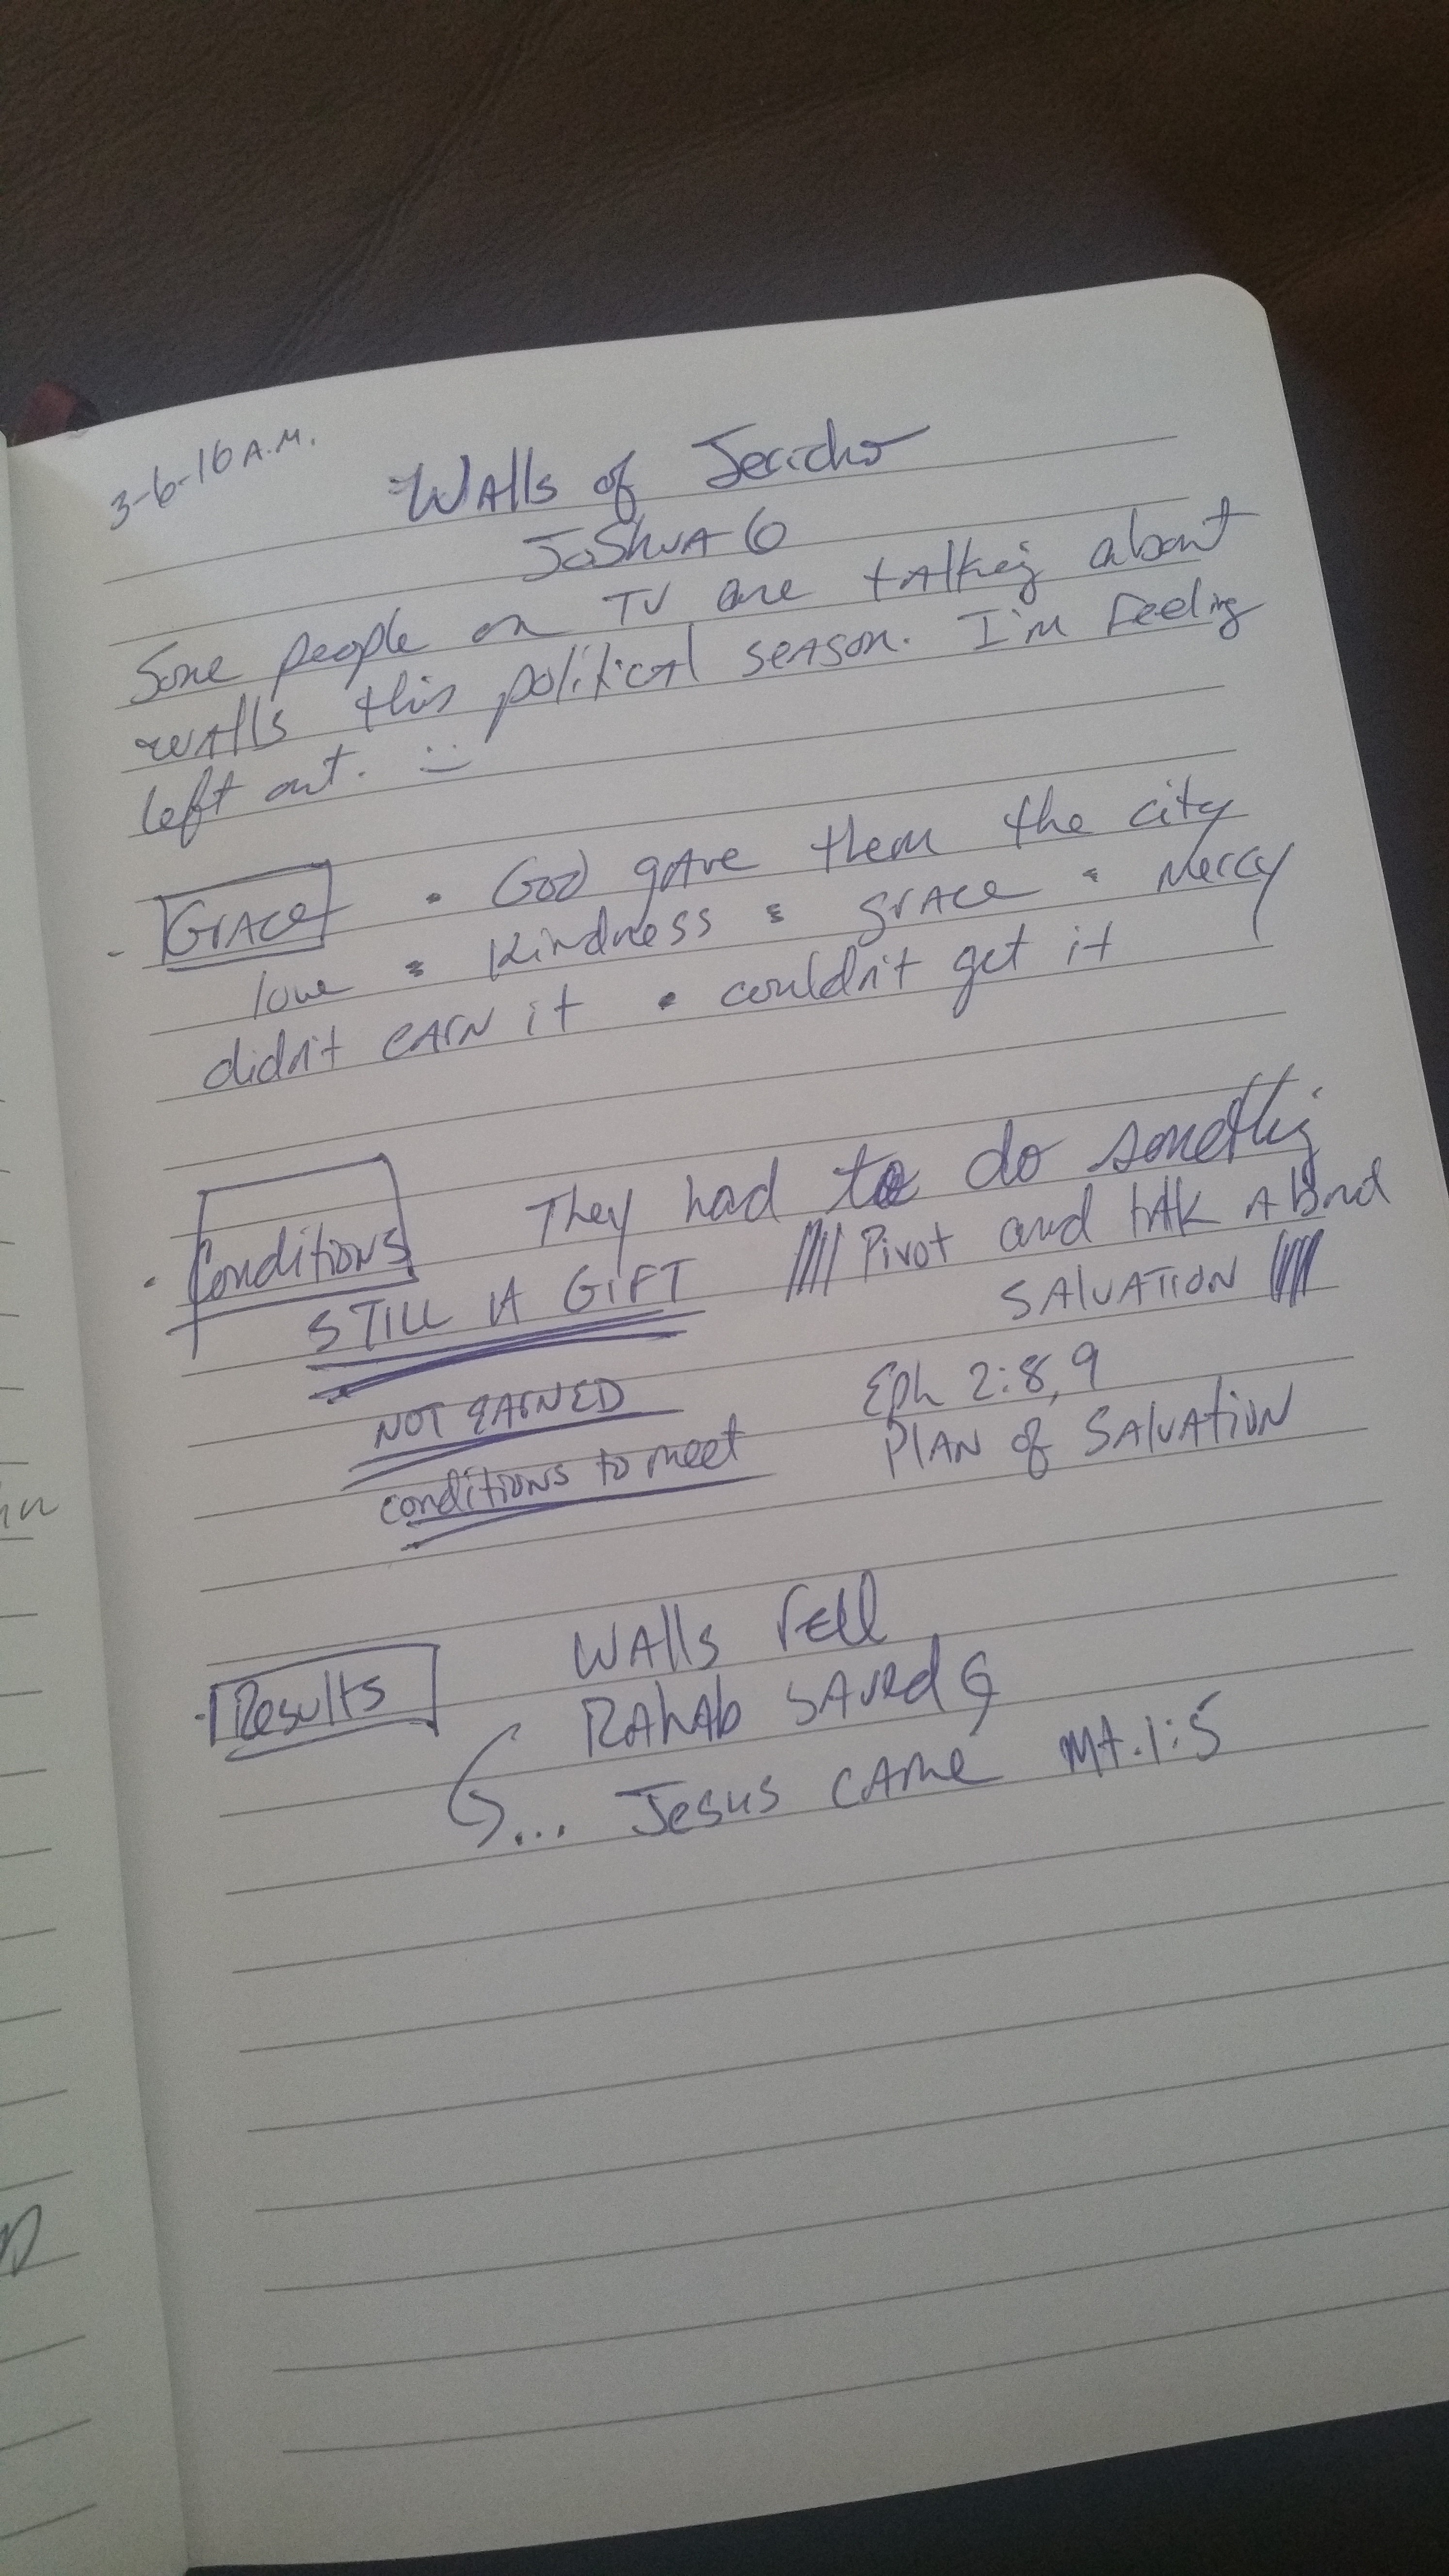 3-6-16 A.M.
Walls of Jericho
Joshua 6
Some people on TV are talking about
walls this political season. I'm feeling
left out. :)
- Grace • God gave them the city
love • kindness • grace • mercy
didn't earn it • couldn't get it
• Conditions They had to do something
STILL A GIFT //// Pivot and talk about
SALVATION ////
NOT EARNED Eph 2:8,9
conditions to meet PLAN of SALVATION
• Results Walls fell
Rahab saved
... Jesus came Mt. 1:5